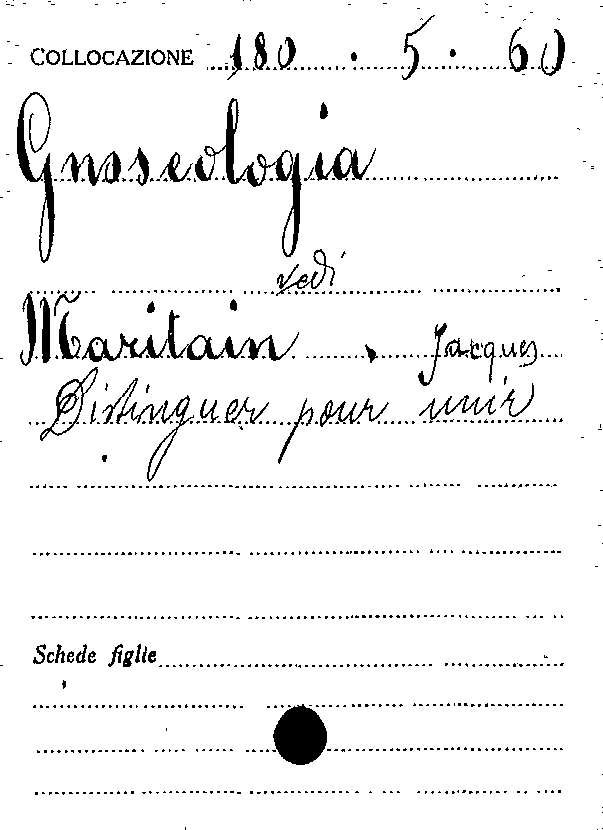 COLLOCAZIONE 180 . 5 . 60
Gnoseologia
vedi
Maritain, Jacques
Distinguer pour unir
Schede figlie